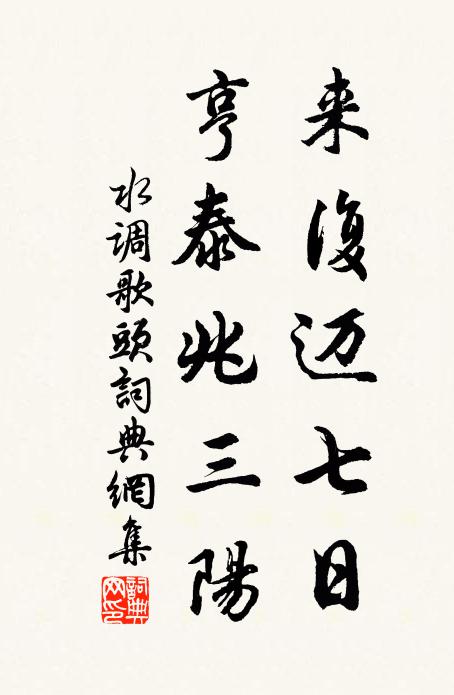 来復迈七日
亨泰兆三陽
水调歌頭詞典網集
詞典网印